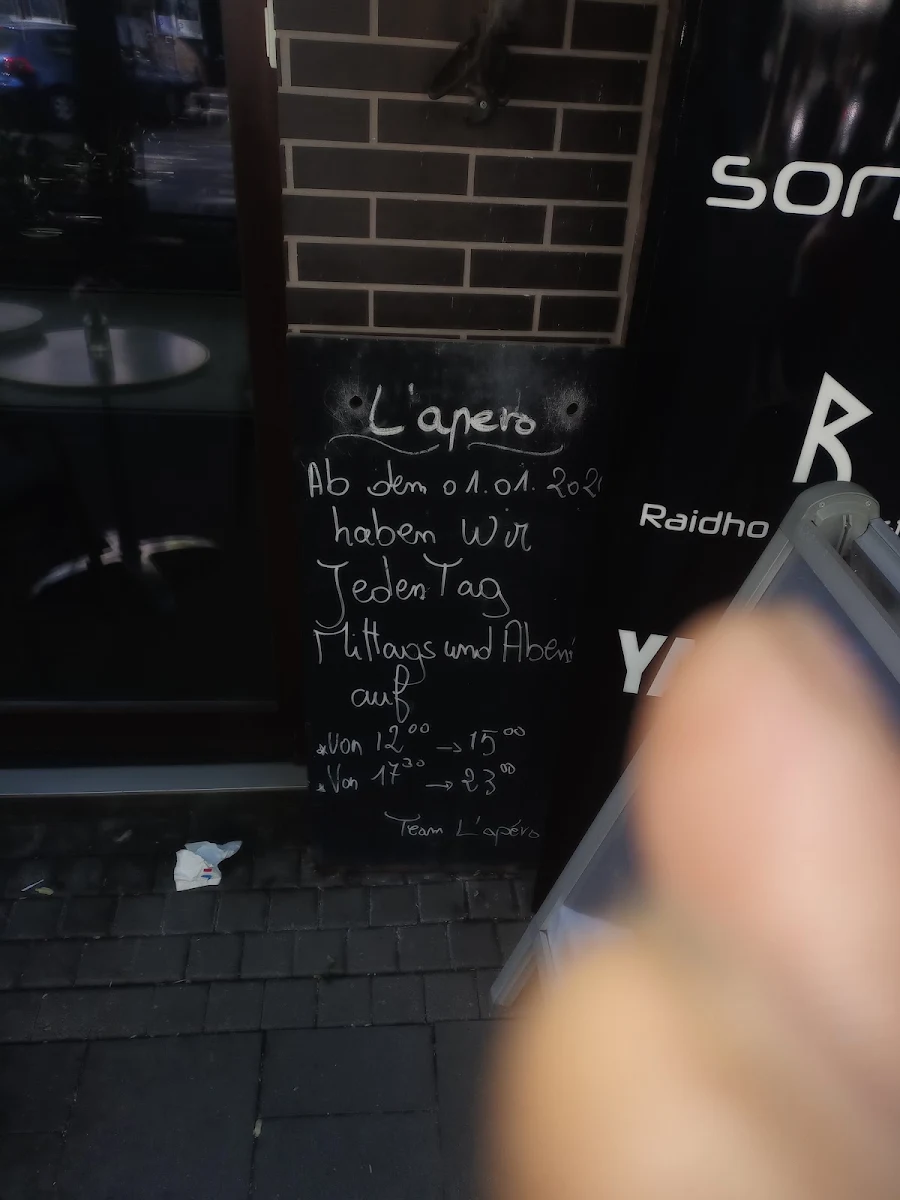 L'apero
Ab dem 01.01.202
haben Wir
Jeden Tag
Mittags und Aben
auf
*Von 12⁰⁰ → 15⁰⁰
*Von 17³⁰ → 23⁰⁰
Team L'apéro
son
Raidho